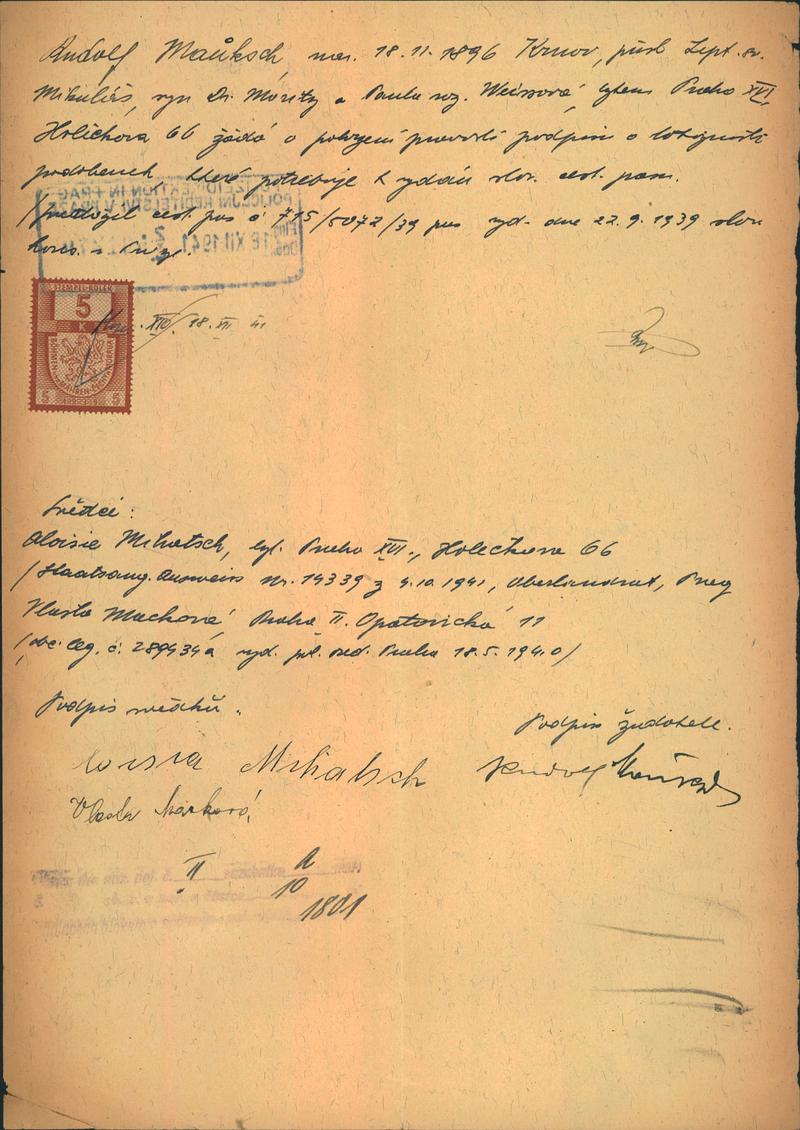 Rudolf Mauksch, nar. 18.11.1896 Krnov, přísl. Lipt. sv.
Mikuláš, syn Dr. Móritz a Paula roz. Weissová, bytem Praha XVI,
Holečkova 66 žádá o potvrzení pravosti podpisu o totožnosti
podobenek které potřebuje k vydání slov. cest. pasu.
/předložil cest. pas č 715/5072/39 pas vyd. dne 22.9.1939 slov.
POLIZEIDIREKTION IN PRAG
POLICEJNÍ ŘEDITELSTVÍ V PRAZE
18 XII. 1941
STEMPEL-KOLEK
5
K
5 5
XVI. 18. XII 41
Svědci:
Aloisie Mihatsch, byt. Praha XVI., Holečkova 66
/Staatsang. Ausweiss Nr. 14339 z 9.10.1941, Oberlandrat, Prag
Vlasta Macková Praha II. Opatovická 11
/obč. leg. č. 289434a vyd. pol. řed. Praha 18.5.1940/
Podpis svědků.
Podpis žadatele.
Mihatsch
Rudolf Mauksch
Vlasta Macková
II
10
1801